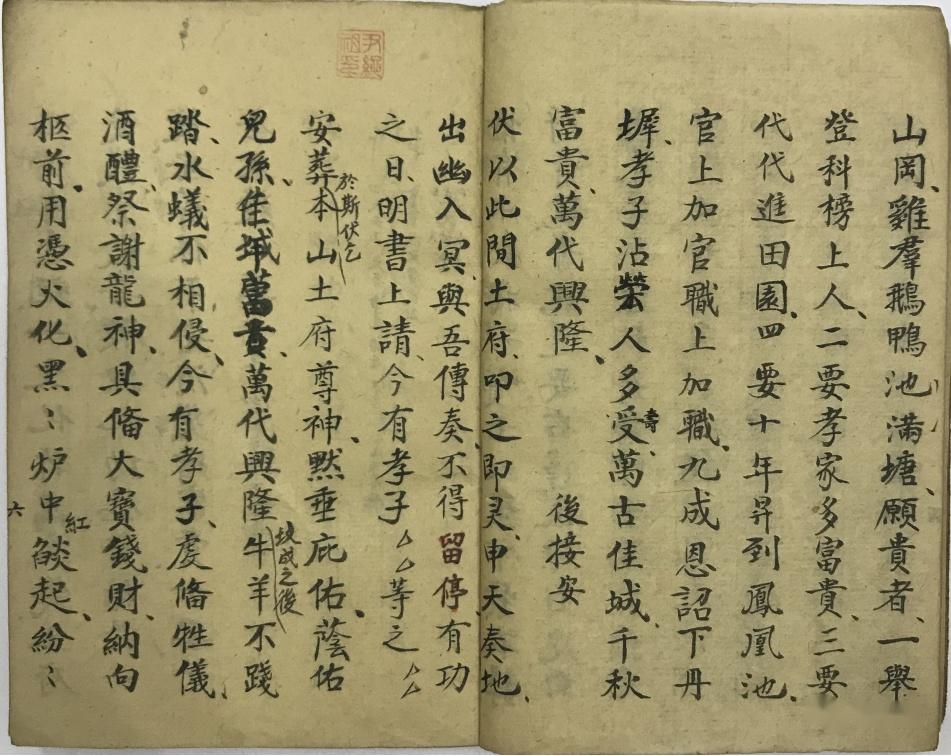 山岡、雞羣鵝鴨池滿塘、願貴者、一舉
登科榜上人、二要孝家多富貴、三要
代代進田園、四要十年昇到鳳凰池、
官上加官職上加職、九成恩詔下丹
墀、孝子沾荣人多受壽、萬古佳城、千秋
富貴、萬代興隆、 後接安
伏以此間土府、叩之即灵、申天奏地、
出幽入冥、與吾傳奏、不得留停、有功
之日、明書上請、今有孝子厶厶等之厶厶
於斯伏乞
安葬本山土府尊神、默垂庇佑、蔭佑
兒孫、佳城富貴、萬代興隆
坟成之後
牛羊不踐
踏、水蟻不相侵、今有孝子、虔俻牲儀、
酒醴、祭謝龍神、具俻大寶錢財、納向
柩前、用憑火化、黑〻炉中
紅
燄起、紛〻
六